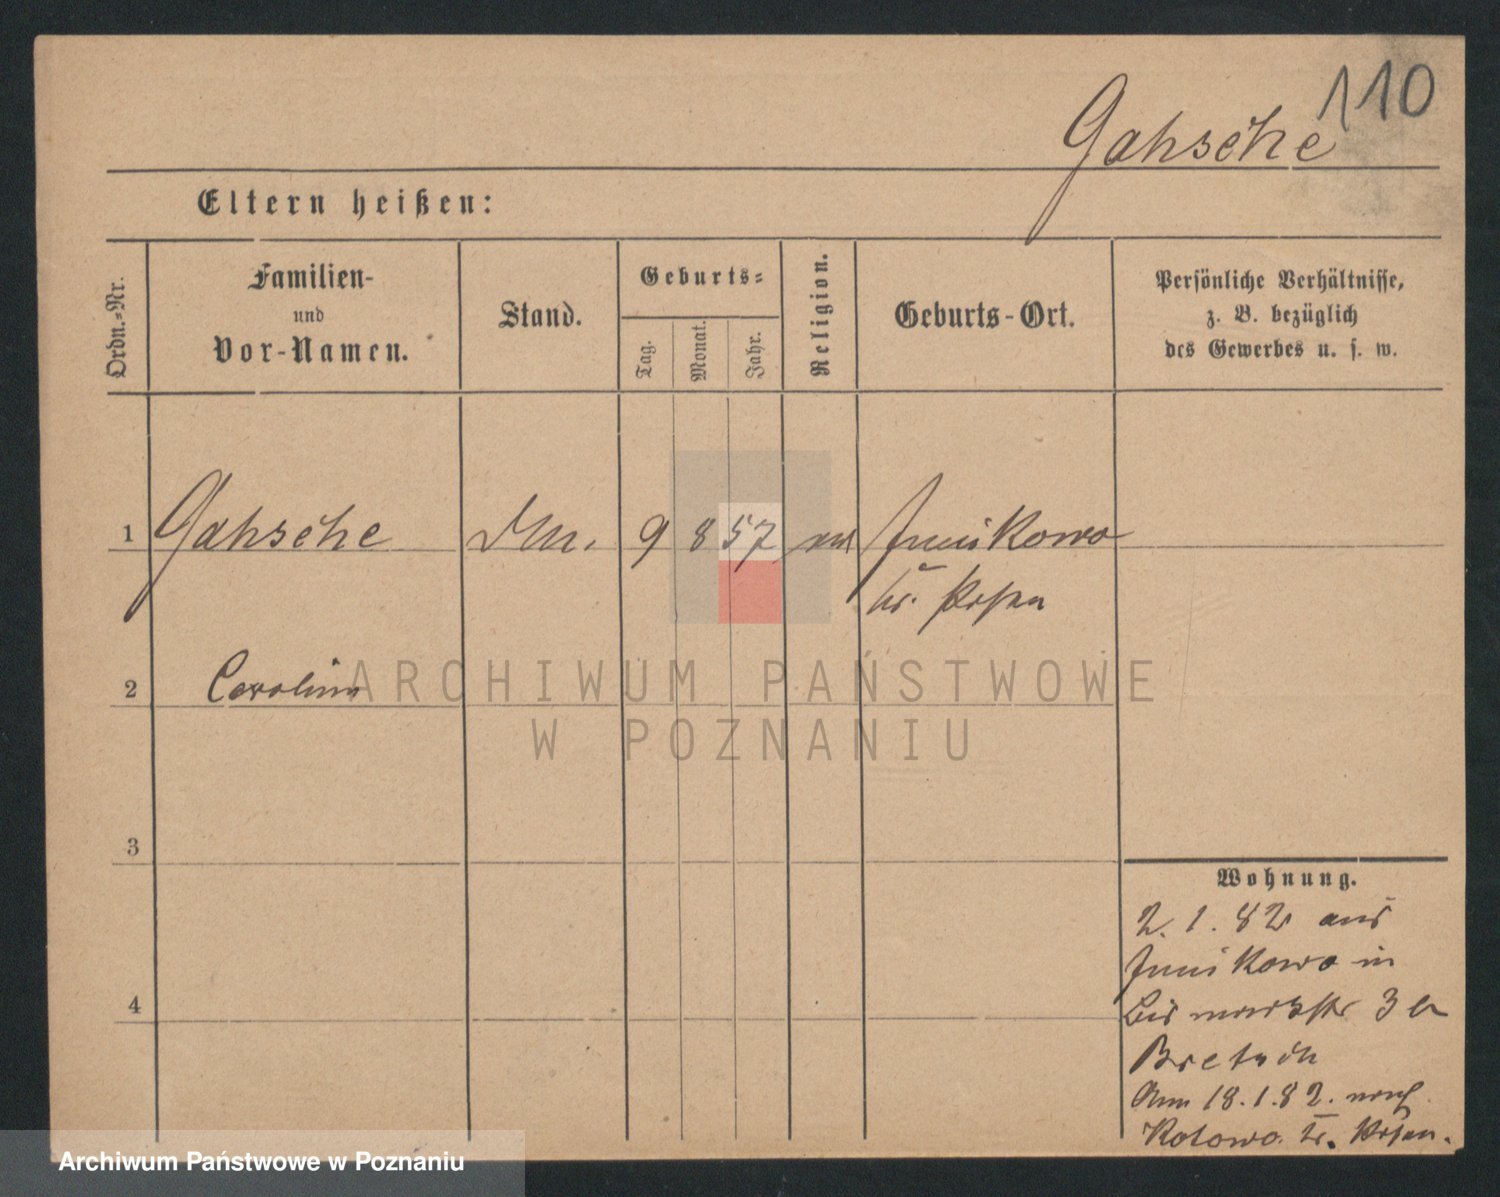 110
Gahsche
Eltern heißen:
Ordn.-Nr.
Familien-
und
Vor-Namen.
Stand.
Geburts-
Tag.
Monat.
Jahr.
Religion.
Geburts-Ort.
Persönliche Verhältnisse,
z. B. bezüglich
des Gewerbes u. s. w.
1 Gahsche 9 8 57 Junikowo
Kr. Posen
2 Carolina
3
4
Wohnung.
2. 1. 82 aus
Junikowo in
Bismarckstr 3 a
Am 18.1.82. nach
Kotowo. Kr. Posen.
ARCHIWUM PAŃSTWOWE
W POZNANIU
Archiwum Państwowe w Poznaniu